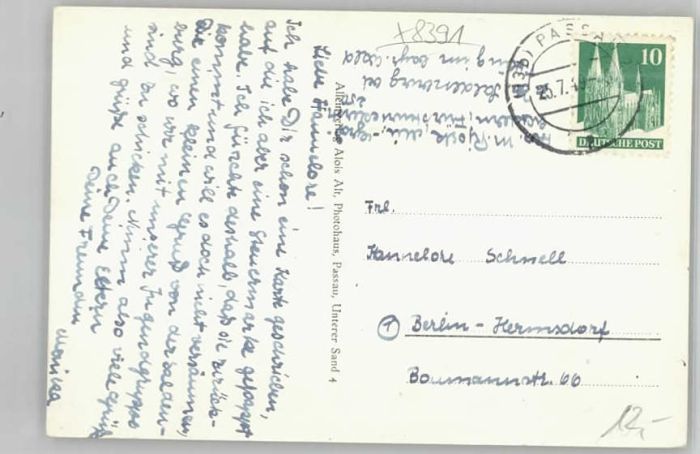 Liebe Hannelore!
Ich habe Dir schon eine Karte geschrieben,
auf die ich aber eine Steuermarke gepappt
habe. Ich fürchte deshalb, daß sie zurück-
kommt und will es doch nicht versäumen,
Dir einen kleinen Gruß von der Salden-
burg, wo wir mit unserer Jugendgruppe
sind zu schicken. Nimm also viele Grüße
und grüße auch Deine Eltern
Deine Freundin
Monika
+8391
Alleinverlag Alois Alt, Photohaus, Passau, Unterer Sand 4
PASSAU
10
DEUTSCHE POST
Frl.
Hannelore Schnell
① Berlin-Hermsdorf
Baumannstr. 66
12,-